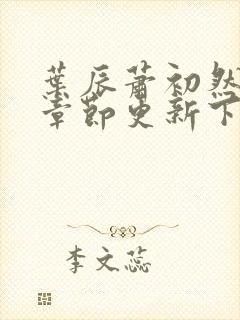 葉辰蕭初然
章節更新下
李文蕊